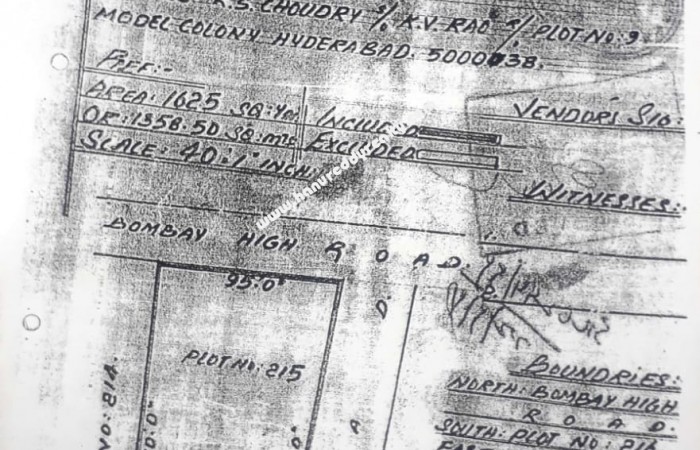 R.S. CHOUDRY S/o K.V. RAO R/o PLOT NO: 9
MODEL COLONY HYDERABAD. 500038.
REF:-
AREA: 1625 SQ: Yds
OR: 1358.50 SQ: mts
SCALE: 40:1" INCH.
INCLUDED
EXCLUDED
VENDORS SIG:
WITNESSES:
BOMBAY HIGH ROAD.
95.0"
PLOT NO: 215
NO: 214.
BOUNDRIES:
NORTH: BOMBAY HIGH
ROAD.
SOUTH: PLOT NO: 216